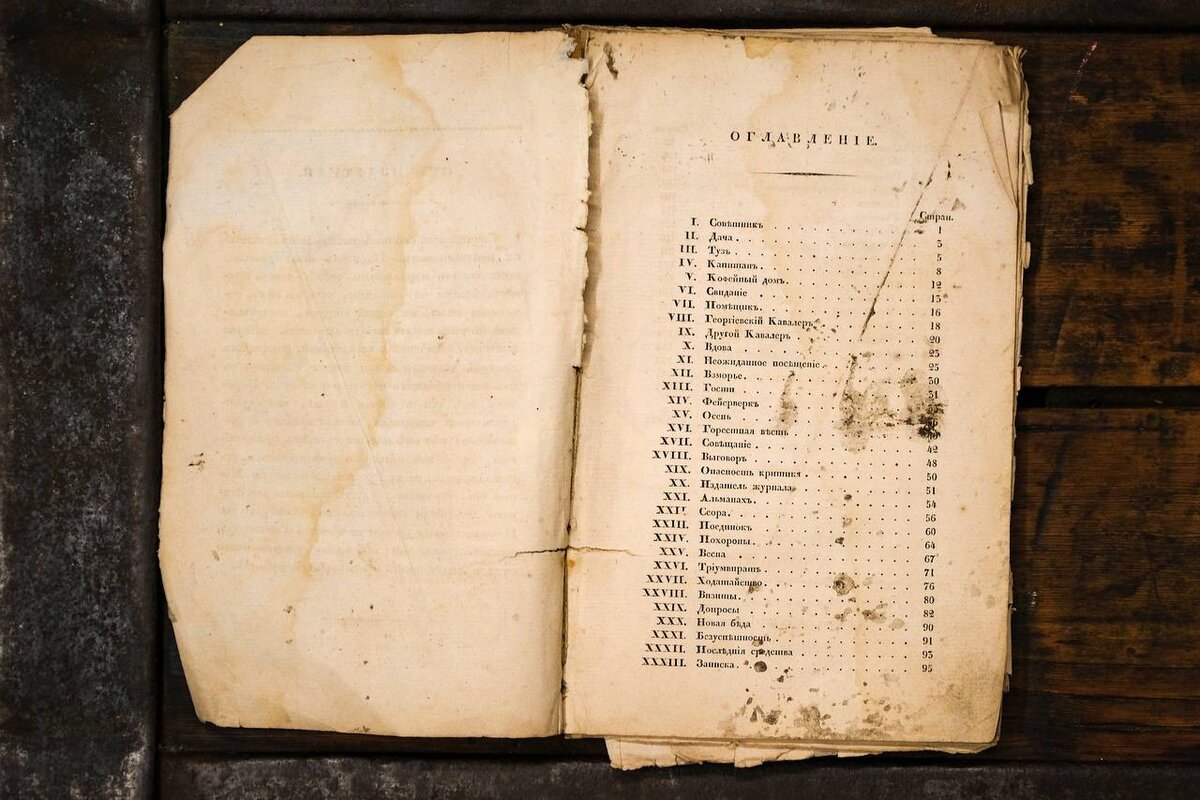 ОГЛАВЛЕНІЕ.
Стран.
I. Совѣтникъ . . . . . . . . . . 1
II. Дача . . . . . . . . . . . . 3
III. Тузъ . . . . . . . . . . . . 5
IV. Капитанъ . . . . . . . . . . . 8
V. Кофейный домъ . . . . . . . . . 12
VI. Свиданіе . . . . . . . . . . . 13
VII. Помѣщикъ . . . . . . . . . . . 16
VIII. Георгіевскій Кавалеръ . . . . . . 18
IX. Другой Кавалеръ . . . . . . . . 20
X. Вдова . . . . . . . . . . . . 23
XI. Неожиданное посѣщеніе . . . . . . 25
XII. Взморье . . . . . . . . . . . 30
XIII. Гости . . . . . . . . . . . . 31
XIV. Фейерверкъ . . . . . . . . . .
XV. Осень . . . . . . . . . . . .
XVI. Горестная вѣсть . . . . . . . .
XVII. Совѣщаніе . . . . . . . . . . 42
XVIII. Выговоръ . . . . . . . . . . . 48
XIX. Опасность критики . . . . . . . 50
XX. Издатель журнала . . . . . . . . 51
XXI. Альманахъ . . . . . . . . . . 54
XXII. Ссора . . . . . . . . . . . . 56
XXIII. Поединокъ . . . . . . . . . . 60
XXIV. Похороны . . . . . . . . . . . 64
XXV. Весна . . . . . . . . . . . . 67
XXVI. Тріумвиратъ . . . . . . . . . . 71
XXVII. Ходатайство . . . . . . . . . . 76
XXVIII. Визиты . . . . . . . . . . . . 80
XXIX. Допросы . . . . . . . . . . . 82
XXX. Новая бѣда . . . . . . . . . . 90
XXXI. Безуспѣшность . . . . . . . . . 91
XXXII. Послѣднія средства . . . . . . . 93
XXXIII. Записка . . . . . . . . . . . 95